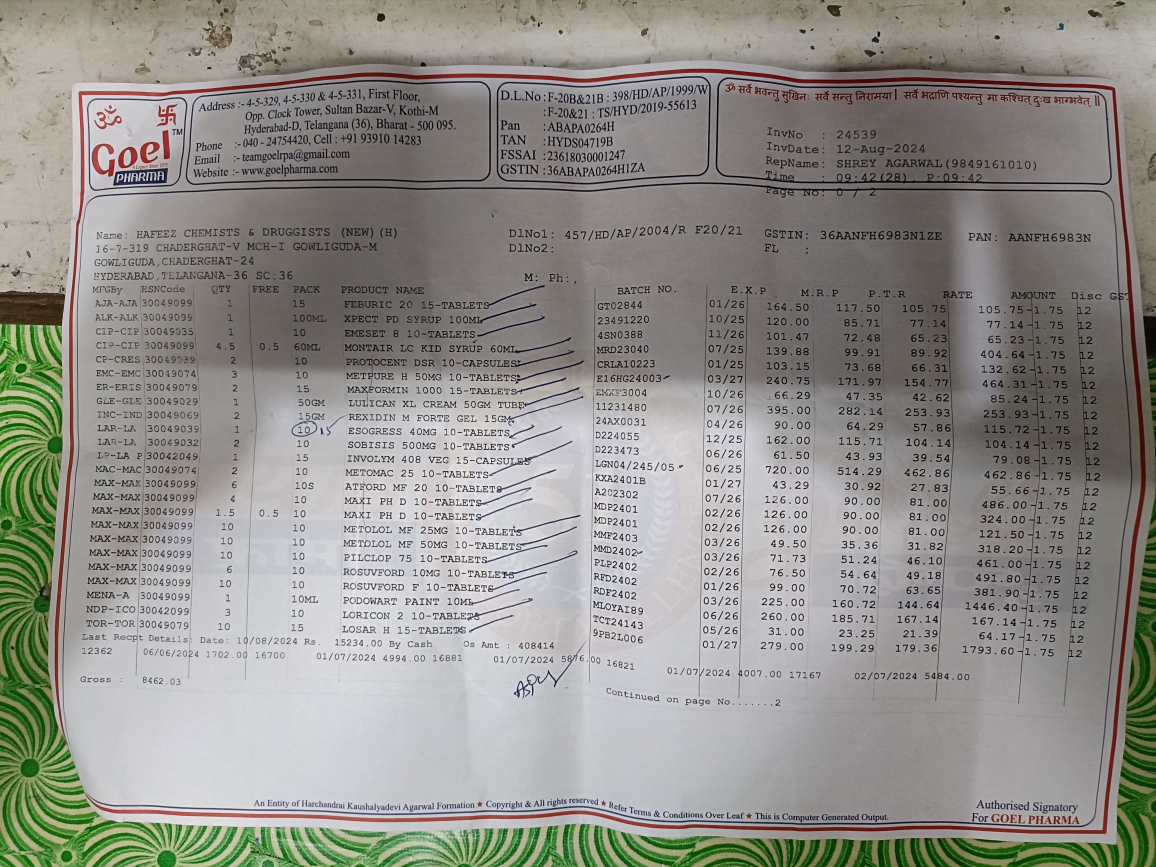 ॐ सर्वे भवन्तु सुखिनः सर्वे सन्तु निरामया। सर्वे भद्राणि पश्यन्तु मा कश्चित् दुःख भाग्भवेत् ॥
ॐ 卐
Goel TM
PHARMA
Address :- 4-5-329, 4-5-330 & 4-5-331, First Floor,
Opp. Clock Tower, Sultan Bazar-V, Kothi-M
Hyderabad-D, Telangana (36), Bharat - 500 095.
Phone :- 040 - 24754420, Cell : +91 93910 14283
Email :- teamgoelrpa@gmail.com
Website :- www.goelpharma.com
D.L.No : F-20B&21B : 398/HD/AP/1999/W
: F-20&21 : TS/HYD/2019-55613
Pan : ABAPA0264H
TAN : HYDS04719B
FSSAI : 23618030001247
GSTIN : 36ABAPA0264H1ZA
InvNo : 24539
InvDate: 12-Aug-2024
RepName: SHREY AGARWAL(9849161010)
Time : 09:42(28), P:09:42
Page No: 0 / 2
Name: HAFEEZ CHEMISTS & DRUGGISTS (NEW)(H) DlNo1: 457/HD/AP/2004/R F20/21 GSTIN: 36AANFH6983N1ZE PAN: AANFH6983N
16-7-319 CHADERGHAT-V MCH-I GOWLIGUDA-M DlNo2: FL :
GOWLIGUDA,CHADERGHAT-24
HYDERABAD,TELANGANA-36 SC:36 M: Ph:,
MFGBy HSNCode QTY FREE PACK PRODUCT NAME BATCH NO. E.X.P M.R.P P.T.R RATE AMOUNT Disc GST
AJA-AJA 30049099 1 15 FEBURIC 20 15-TABLETS GT02844 01/26 164.50 117.50 105.75 105.75-1.75 12
ALK-ALK 30049099 1 100ML XPECT PD SYRUP 100ML 23491220 10/25 120.00 85.71 77.14 77.14-1.75 12
CIP-CIP 30049035 1 10 EMESET 8 10-TABLETS 4SN0388 11/26 101.47 72.48 65.23 65.23-1.75 12
CIP-CIP 30049099 4.5 0.5 60ML MONTAIR LC KID SYRUP 60ML MRD23040 07/25 139.88 99.91 89.92 404.64-1.75 12
CP-CRES 30049039 2 10 PROTOCENT DSR 10-CAPSULES CRLA10223 01/25 103.15 73.68 66.31 132.62-1.75 12
EMC-EMC 30049074 3 10 METPURE H 50MG 10-TABLETS E16HG24003 03/27 240.75 171.97 154.77 464.31-1.75 12
ER-ERIS 30049079 2 15 MAXFORMIN 1000 15-TABLETS EMXF3004 10/26 66.29 47.35 42.62 85.24-1.75 12
GLE-GLE 30049029 1 50GM LULICAN XL CREAM 50GM TUBE 11231480 07/26 395.00 282.14 253.93 253.93-1.75 12
INC-IND 30049069 2 15GM REXIDIN M FORTE GEL 15GM 24AX0031 04/26 90.00 64.29 57.86 115.72-1.75 12
LAR-LA 30049039 1 10 15 ESOGRESS 40MG 10-TABLETS D224055 12/25 162.00 115.71 104.14 104.14-1.75 12
LAR-LA 30049032 2 10 SOBISIS 500MG 10-TABLETS D223473 06/26 61.50 43.93 39.54 79.08-1.75 12
LP-LA P 30042049 1 15 INVOLYM 408 VEG 15-CAPSULES LGN04/245/05 06/25 720.00 514.29 462.86 462.86-1.75 12
MAC-MAC 30049074 2 10 METOMAC 25 10-TABLETS KXA2401B 01/27 43.29 30.92 27.83 55.66-1.75 12
MAX-MAX 30049099 6 10S ATFORD MF 20 10-TABLETS A202302 07/26 126.00 90.00 81.00 486.00-1.75 12
MAX-MAX 30049099 4 10 MAXI PH D 10-TABLETS MDP2401 02/26 126.00 90.00 81.00 324.00-1.75 12
MAX-MAX 30049099 1.5 0.5 10 MAXI PH D 10-TABLETS MDP2401 02/26 126.00 90.00 81.00 121.50-1.75 12
MAX-MAX 30049099 10 10 METOLOL MF 25MG 10-TABLETS MMF2403 03/26 49.50 35.36 31.82 318.20-1.75 12
MAX-MAX 30049099 10 10 METOLOL MF 50MG 10-TABLETS MMD2402 03/26 71.73 51.24 46.10 461.00-1.75 12
MAX-MAX 30049099 10 10 PILCLOP 75 10-TABLETS PLP2402 02/26 76.50 54.64 49.18 491.80-1.75 12
MAX-MAX 30049099 6 10 ROSUVFORD 10MG 10-TABLETS RFD2402 01/26 99.00 70.72 63.65 381.90-1.75 12
MAX-MAX 30049099 10 10 ROSUVFORD F 10-TABLETS RDF2402 03/26 225.00 160.72 144.64 1446.40-1.75 12
MENA-A 30049099 1 10ML PODOWART PAINT 10ML MLOYAI89 06/26 260.00 185.71 167.14 167.14-1.75 12
NDP-ICO 30042099 3 10 LORICON 2 10-TABLETS TCT24143 05/26 31.00 23.25 21.39 64.17-1.75 12
TOR-TOR 30049079 10 15 LOSAR H 15-TABLETS 9PB2L006 01/27 279.00 199.29 179.36 1793.60-1.75 12
Last Recpt Details: Date: 10/08/2024 Rs. 15234.00 By Cash Os Amt : 408414
12362 06/06/2024 1702.00 16700 01/07/2024 4994.00 16881 01/07/2024 5876.00 16821 01/07/2024 4007.00 17167 02/07/2024 5484.00
Gross : 8462.03
Continued on page No.......2
An Entity of Harchandrai Kaushalyadevi Agarwal Formation ★ Copyright & All rights reserved ★ Refer Terms & Conditions Over Leaf ★ This is Computer Generated Output.
Authorised Signatory
For GOEL PHARMA